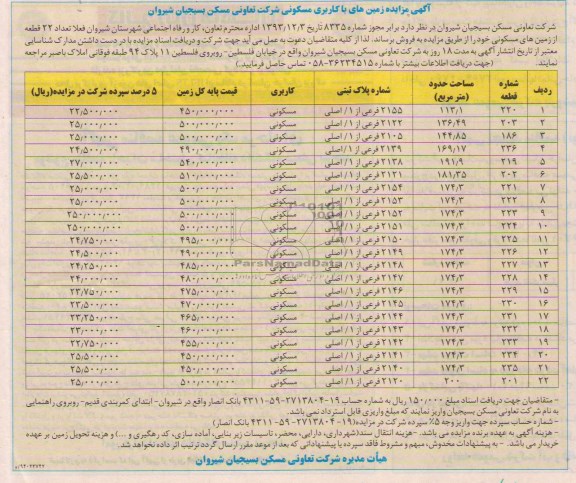 آگهی مزایده زمین های با کاربری مسکونی شرکت تعاونی مسکن بسیجیان شیروان
شرکت تعاونی مسکن بسیجیان شیروان در نظر دارد برابر مجوز شماره ۸۳۳۵ تاریخ ۱۳۹۳/۱۲/۳ اداره محترم تعاون، کار و رفاه اجتماعی شهرستان شیروان فعلا تعداد ۲۲ قطعه
از زمین های مسکونی خود را از طریق مزایده به فروش برساند. لذا از کلیه متقاضیان دعوت به عمل می آید جهت شرکت و دریافت اسناد مزایده با در دست داشتن مدارک شناسایی
معتبر از تاریخ انتشار آگهی به مدت ۱۸ روز به شرکت تعاونی مسکن بسیجیان شیروان واقع در خیابان فلسطین- روبروی فلسطین ۱۱ پلاک ۹۴ طبقه فوقانی املاک باصیر مراجعه
نمایند. (جهت دریافت اطلاعات بیشتر با شماره ۳۶۲۳۴۵۱۵-۰۵۸ تماس حاصل فرمایید.)
ردیف شماره قطعه مساحت حدود (متر مربع) شماره پلاک ثبتی کاربری قیمت پایه کل زمین ۵ درصد سپرده شرکت در مزایده(ریال)
۱ ۲۲۰ ۱۱۳,۱ ۲۱۵۵ فرعی از ۱/ اصلی مسکونی ۴۵۰,۰۰۰,۰۰۰ ۲۲,۵۰۰,۰۰۰
۲ ۲۰۳ ۱۳۶,۴۹ ۲۱۲۲ فرعی از ۱/ اصلی مسکونی ۵۰۰,۰۰۰,۰۰۰ ۲۵,۰۰۰,۰۰۰
۳ ۱۸۶ ۱۴۴,۸۵ ۲۱۰۵ فرعی از ۱/ اصلی مسکونی ۵۰۰,۰۰۰,۰۰۰ ۲۵,۰۰۰,۰۰۰
۴ ۲۳۶ ۱۶۹,۱۷ ۲۱۳۹ فرعی از ۱/ اصلی مسکونی ۴۹۰,۰۰۰,۰۰۰ ۲۴,۵۰۰,۰۰۰
۵ ۲۱۹ ۱۹۱,۹ ۲۱۳۸ فرعی از ۱/ اصلی مسکونی ۵۴۰,۰۰۰,۰۰۰ ۲۷,۰۰۰,۰۰۰
۶ ۲۰۲ ۱۸۱,۳۵ ۲۱۲۱ فرعی از ۱/ اصلی مسکونی ۵۱۰,۰۰۰,۰۰۰ ۲۵,۵۰۰,۰۰۰
۷ ۲۲۱ ۱۷۴,۳ ۲۱۵۴ فرعی از ۱/ اصلی مسکونی ۵۰۰,۰۰۰,۰۰۰ ۲۵,۰۰۰,۰۰۰
۸ ۲۲۲ ۱۷۴,۳ ۲۱۵۳ فرعی از ۱/ اصلی مسکونی ۵۰۰,۰۰۰,۰۰۰ ۲۵,۰۰۰,۰۰۰
۹ ۲۲۳ ۱۷۴,۳ ۲۱۵۲ فرعی از ۱/ اصلی مسکونی ۵۰۰,۰۰۰,۰۰۰ ۲۵۰,۰۰۰,۰۰۰
۱۰ ۲۲۴ ۱۷۴,۳ ۲۱۵۱ فرعی از ۱/ اصلی مسکونی ۵۰۰,۰۰۰,۰۰۰ ۲۵۰,۰۰۰,۰۰۰
۱۱ ۲۲۵ ۱۷۴,۳ ۲۱۵۰ فرعی از ۱/ اصلی مسکونی ۴۹۵,۰۰۰,۰۰۰ ۲۴,۷۵۰,۰۰۰
۱۲ ۲۲۶ ۱۷۴,۳ ۲۱۴۹ فرعی از ۱/ اصلی مسکونی ۴۹۰,۰۰۰,۰۰۰ ۲۴,۵۰۰,۰۰۰
۱۳ ۲۲۷ ۱۷۴,۳ ۲۱۴۸ فرعی از ۱/ اصلی مسکونی ۴۸۵,۰۰۰,۰۰۰ ۲۴,۲۵۰,۰۰۰
۱۴ ۲۲۸ ۱۷۴,۳ ۲۱۴۷ فرعی از ۱/ اصلی مسکونی ۴۸۰,۰۰۰,۰۰۰ ۲۴,۰۰۰,۰۰۰
۱۵ ۲۲۹ ۱۷۴,۳ ۲۱۴۶ فرعی از ۱/ اصلی مسکونی ۴۷۵,۰۰۰,۰۰۰ ۲۳,۷۵۰,۰۰۰
۱۶ ۲۳۰ ۱۷۴,۳ ۲۱۴۵ فرعی از ۱/ اصلی مسکونی ۴۷۰,۰۰۰,۰۰۰ ۲۳,۵۰۰,۰۰۰
۱۷ ۲۳۱ ۱۷۴,۳ ۲۱۴۴ فرعی از ۱/ اصلی مسکونی ۴۶۵,۰۰۰,۰۰۰ ۲۳,۲۵۰,۰۰۰
۱۸ ۲۳۲ ۱۷۴,۳ ۲۱۴۳ فرعی از ۱/ اصلی مسکونی ۴۶۰,۰۰۰,۰۰۰ ۲۳,۰۰۰,۰۰۰
۱۹ ۲۳۳ ۱۷۴,۳ ۲۱۴۲ فرعی از ۱/ اصلی مسکونی ۴۵۵,۰۰۰,۰۰۰ ۲۲,۷۵۰,۰۰۰
۲۰ ۲۳۴ ۱۷۴,۳ ۲۱۴۱ فرعی از ۱/ اصلی مسکونی ۴۵۰,۰۰۰,۰۰۰ ۲۵,۵۰۰,۰۰۰
۲۱ ۲۳۵ ۱۷۴,۳ ۲۱۴۰ فرعی از ۱/ اصلی مسکونی ۴۵۰,۰۰۰,۰۰۰ ۲۵,۵۰۰,۰۰۰
۲۲ ۲۰۱ ۲۰۰ ۲۱۲۰ فرعی از ۱/ اصلی مسکونی ۵۰۰,۰۰۰,۰۰۰ ۲۵,۰۰۰,۰۰۰
ParsNamadData
- متقاضیان جهت دریافت اسناد مبلغ ۱۵۰,۰۰۰ ریال به شماره حساب ۱۹-۲۷۱۳۸۰۴-۵۹-۴۳۱۱ بانک انصار واقع در شیروان- ابتدای کمربندی قدیم- روبروی راهنمایی
به نام شرکت تعاونی مسکن بسیجیان واریز نمایند که مبلغ واریزی قابل استرداد نمی باشد.
- شماره حساب سپرده جهت واریز وجه ۵٪ سپرده شرکت در مزایده(۱۹-۲۷۱۳۸۰۴-۵۹-۴۳۱۱ بانک انصار)
- هزینه آگهی به عهده برنده مزایده می باشد. - هزینه انتقال سند(شهرداری، دارایی، محضر، تاسیسات زیربنایی، آماده سازی، کد رهگیری و ....) و هزینه تحویل زمین بر عهده
خریدار می باشد. - به پیشنهادات مخدوش، مبهم و مشروط فاقد سپرده یا پیشنهاداتی که بعد از موعد مقرر ارسال گردد ترتیب اثر داده نخواهد شد.
هیأت مدیره شرکت تعاونی مسکن بسیجیان شیروان